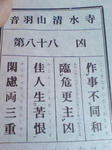 音羽山清水寺
第八十八 凶
作事不同和
臨危更主凶
佳人生苦恨
閑慮両三重